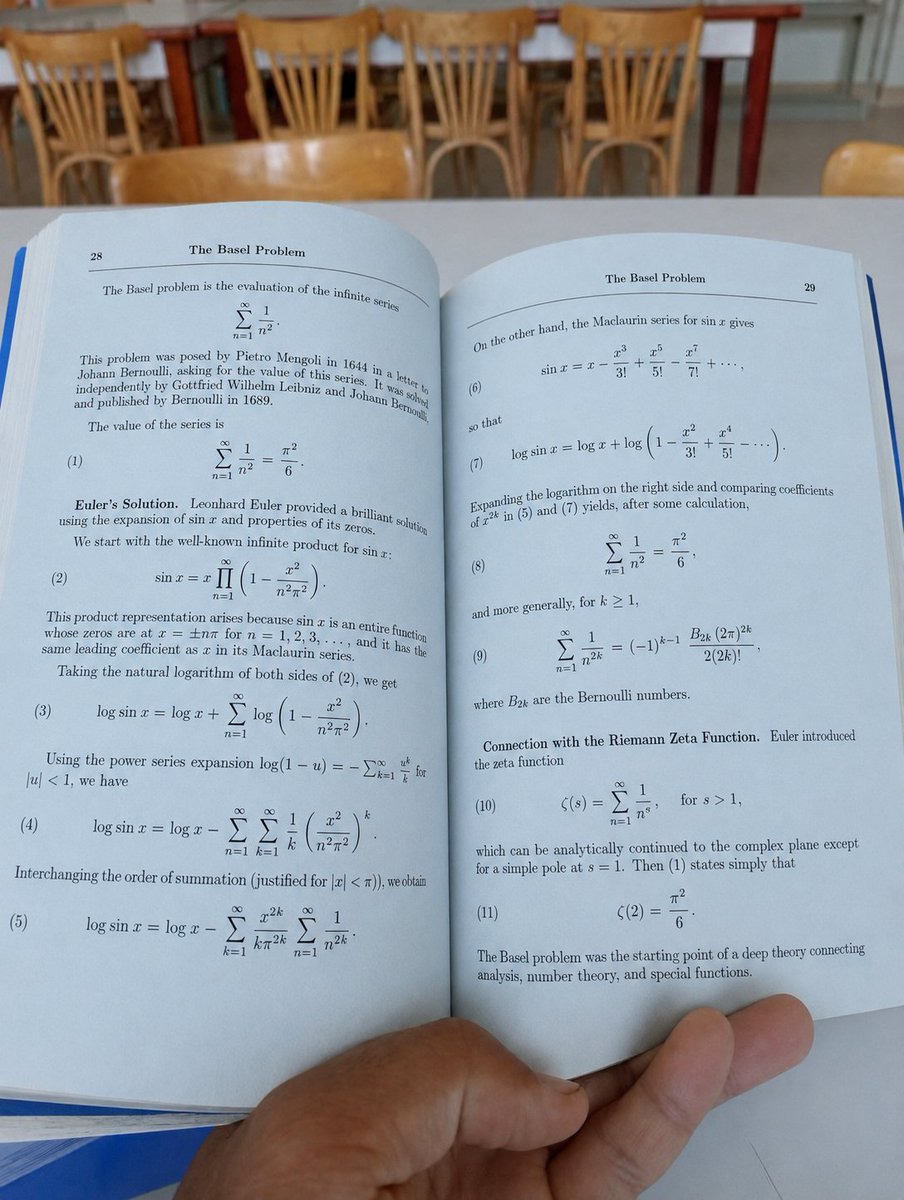 28 The Basel Problem
The Basel problem is the evaluation of the infinite series
∑_{n=1}^{∞} 1/n².
This problem was posed by Pietro Mengoli in 1644 in a letter to
Johann Bernoulli, asking for the value of this series. It was solved
independently by Gottfried Wilhelm Leibniz and Johann Bernoulli,
and published by Bernoulli in 1689.
The value of the series is
(1) ∑_{n=1}^{∞} 1/n² = π²/6.
Euler's Solution. Leonhard Euler provided a brilliant solution
using the expansion of sin x and properties of its zeros.
We start with the well-known infinite product for sin x:
(2) sin x = x ∏_{n=1}^{∞} (1 − x²/(n²π²)).
This product representation arises because sin x is an entire function
whose zeros are at x = ±nπ for n = 1, 2, 3, . . . , and it has the
same leading coefficient as x in its Maclaurin series.
Taking the natural logarithm of both sides of (2), we get
(3) log sin x = log x + ∑_{n=1}^{∞} log (1 − x²/(n²π²)).
Using the power series expansion log(1 − u) = −∑_{k=1}^{∞} u^k/k for
|u| < 1, we have
(4) log sin x = log x − ∑_{n=1}^{∞} ∑_{k=1}^{∞} 1/k (x²/(n²π²))^k.
Interchanging the order of summation (justified for |x| < π)), we obtain
(5) log sin x = log x − ∑_{k=1}^{∞} x^{2k}/(kπ^{2k}) ∑_{n=1}^{∞} 1/n^{2k}.
The Basel Problem 29
On the other hand, the Maclaurin series for sin x gives
(6) sin x = x − x³/3! + x⁵/5! − x⁷/7! + ⋯ ,
so that
(7) log sin x = log x + log (1 − x²/3! + x⁴/5! − ⋯).
Expanding the logarithm on the right side and comparing coefficients
of x^{2k} in (5) and (7) yields, after some calculation,
(8) ∑_{n=1}^{∞} 1/n² = π²/6,
and more generally, for k ≥ 1,
(9) ∑_{n=1}^{∞} 1/n^{2k} = (−1)^{k−1} B_{2k} (2π)^{2k}/(2(2k)!),
where B_{2k} are the Bernoulli numbers.
Connection with the Riemann Zeta Function. Euler introduced
the zeta function
(10) ζ(s) = ∑_{n=1}^{∞} 1/n^s, for s > 1,
which can be analytically continued to the complex plane except
for a simple pole at s = 1. Then (1) states simply that
(11) ζ(2) = π²/6.
The Basel problem was the starting point of a deep theory connecting
analysis, number theory, and special functions.